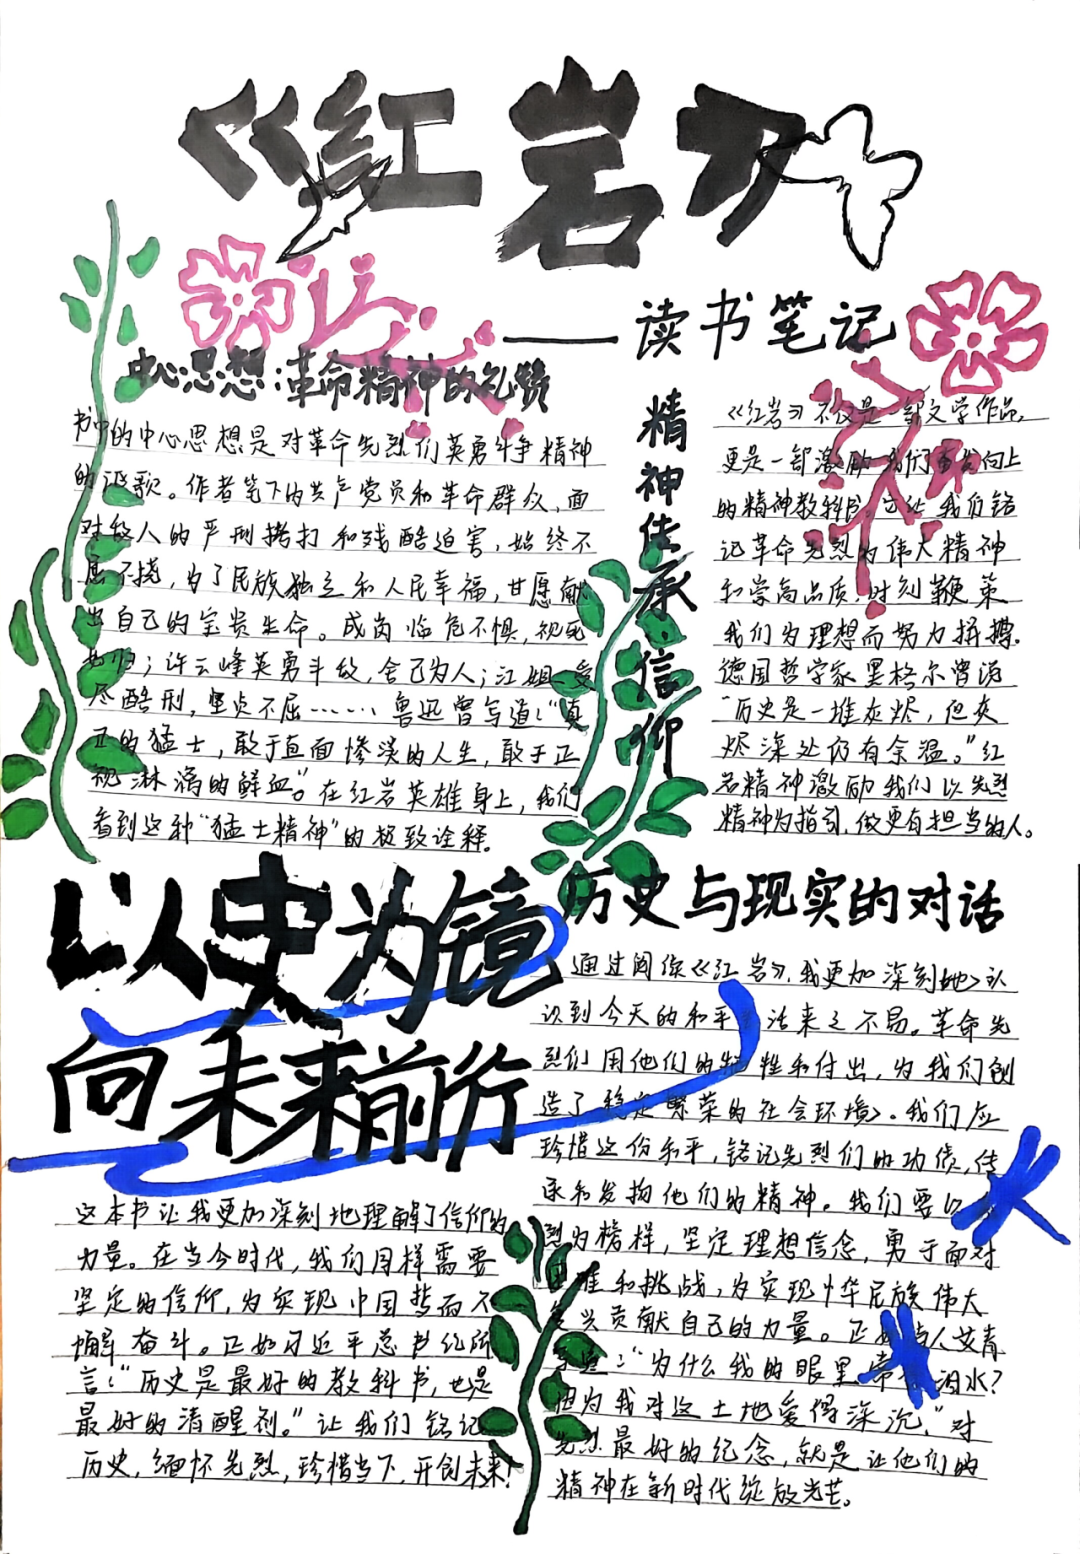 《红岩》
——读书笔记
中心思想:革命精神的礼赞
书中的中心思想是对革命先烈们英勇斗争精神
的讴歌。作者笔下的共产党员和革命群众,面
对敌人的严刑拷打和残酷迫害,始终不
屈不挠,为了民族独立和人民幸福,甘愿献
出自己的宝贵生命。成岗临危不惧,视死
如归;许云峰英勇斗敌,舍己为人;江姐受
尽酷刑,坚贞不屈……鲁迅曾写道:“真
正的猛士,敢于直面惨淡的人生,敢于正
视淋漓的鲜血”。在红岩英雄身上,我们
看到这种“猛士精神”的极致诠释。
精神传承·信仰
《红岩》不仅是一部文学作品,
更是一部激励我们奋发向上
的精神教科书。它让我们铭
记革命先烈的伟大精神
和崇高品质,时刻鞭策
我们为理想而努力拼搏.
德国哲学家黑格尔曾说
“历史是一堆灰烬,但灰
烬深处仍有余温。”红
岩精神激励我们以先烈
精神为指引,做更有担当的人。
以史为镜
向未来前行
这本书让我更加深刻地理解了信仰的
力量。在当今时代,我们同样需要
坚定的信仰,为实现中国梦而不
懈奋斗。正如习近平总书记所
言:“历史是最好的教科书,也是
最好的清醒剂。”让我们铭记
历史,缅怀先烈,珍惜当下,开创未来!
历史与现实的对话
通过阅读《红岩》,我更加深刻地认
识到今天的和平 活来之不易。革命先
烈们用他们的牺牲和付出,为我们创
造了稳定繁荣的社会环境。我们应
珍惜这份和平,铭记先烈们的功绩,传
承和发扬他们的精神。我们要以
烈为榜样,坚定理想信念,勇于面对
难和挑战,为实现中华民族伟大
复兴贡献自己的力量。正如 人艾青
:“为什么我的眼里常 泪水?
因为我对这土地爱得深沉”对
先烈最好的纪念,就是让他们的
精神在新时代绽放光芒。